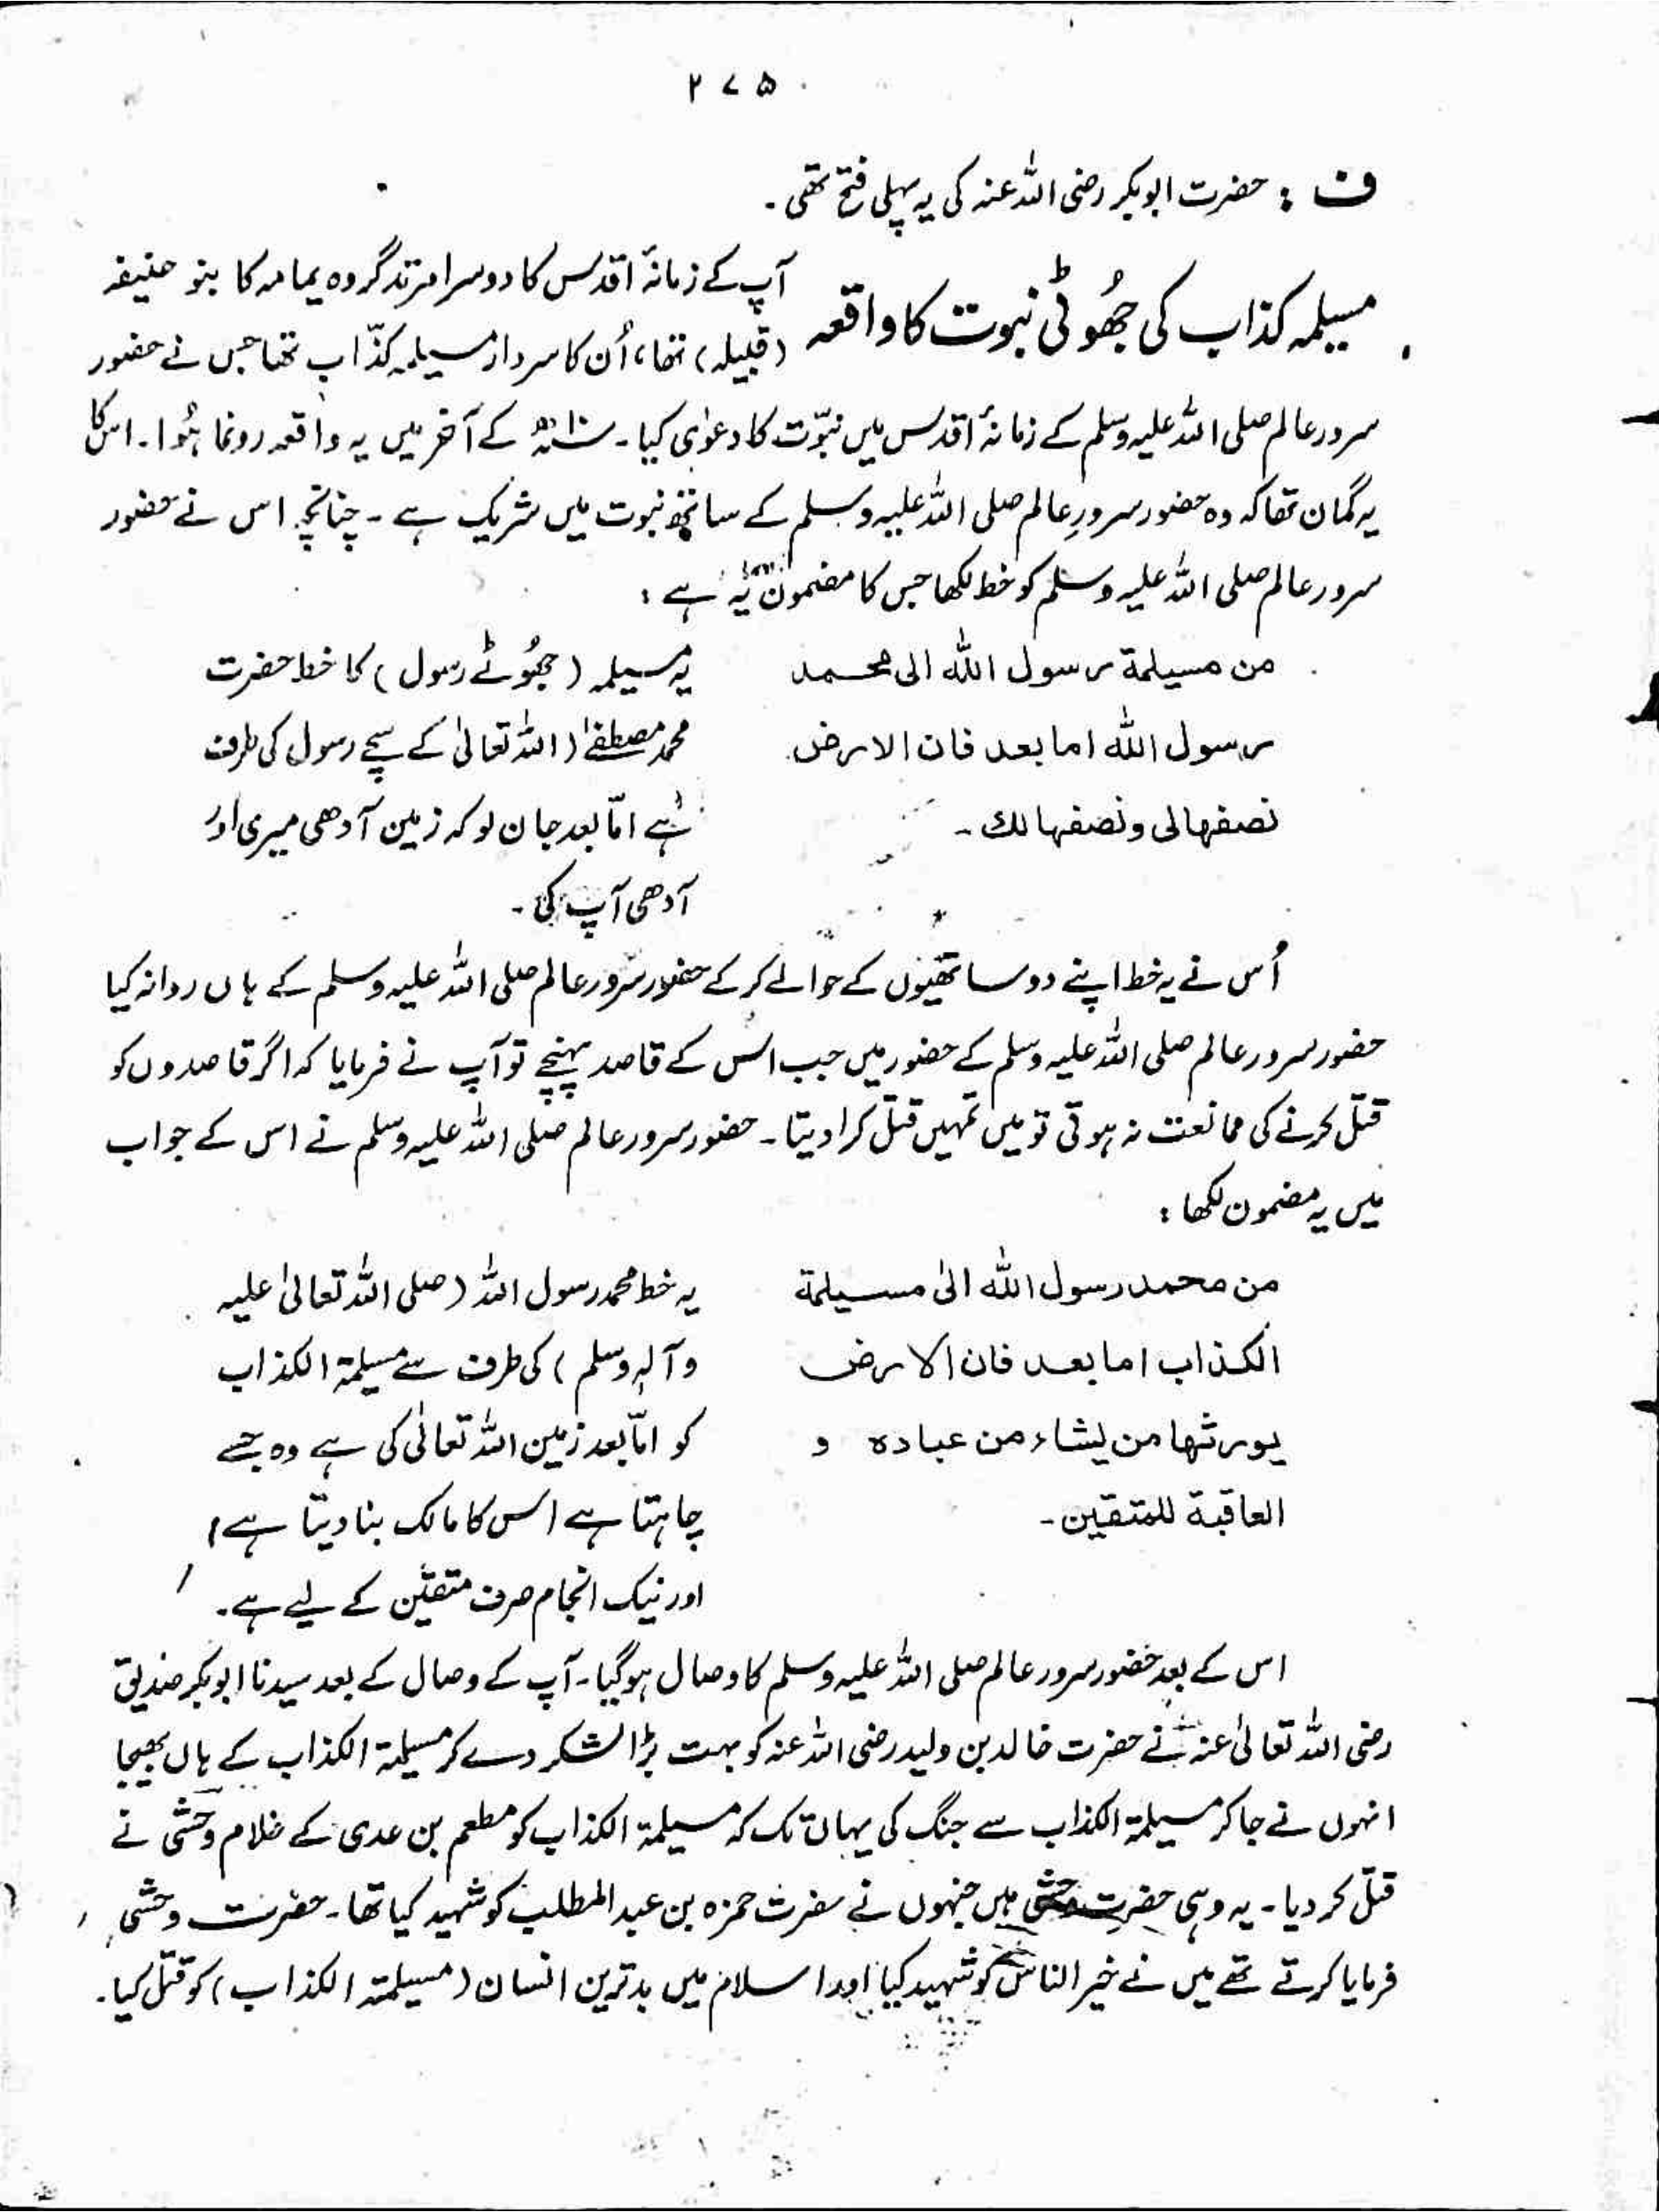 ۲۷۵
ف : حضرت ابوبکر رضی اللہ عنہ کی یہ پہلی فتح تھی۔
مسیلمہ کذاب کی جھُوٹی نبوت کا واقعہ
آپ کے زمانۂ اقدس کا دوسرا مرتد گروہ یمامہ کا بنو حنیفہ
(قبیلہ) تھا، اُن کا سردار مسیلمہ کذّاب تھا جس نے حضور
سرور عالم صلی اللہ علیہ وسلم کے زمانۂ اقدس میں نبوّت کا دعوٰی کیا۔ سنہ ۱۰ھ کے آخر میں یہ واقعہ رونما ہُوا۔ اس کا
یہ گمان تھا کہ وہ حضور سرورِ عالم صلی اللہ علیہ وسلم کے ساتھ نبوت میں شریک ہے۔ چنانچہ اس نے حضور
سرور عالم صلی اللہ علیہ وسلم کو خط لکھا جس کا مضمون یہ ہے :
من مسیلمة رسول اللہ الی محمد
رسول اللہ اما بعد فان الارض
نصفها لی ونصفها لك۔
یہ مسیلمہ (جھُوٹے رسول) کا خط حضرت
محمد مصطفےٰ (اللہ تعالیٰ کے سچے رسول کی طرف
ہے امّا بعد جان لو کہ زمین آدھی میری اور
آدھی آپ کی۔
اُس نے یہ خط اپنے دو ساتھیوں کے حوالے کر کے حضور سرور عالم صلی اللہ علیہ وسلم کے ہاں روانہ کیا
حضور سرور عالم صلی اللہ علیہ وسلم کے حضور میں جب اس کے قاصد پہنچے تو آپ نے فرمایا کہ اگر قاصدوں کو
قتل کرنے کی ممانعت نہ ہوتی تو میں تمہیں قتل کرا دیتا۔ حضور سرور عالم صلی اللہ علیہ وسلم نے اس کے جواب
میں یہ مضمون لکھا :
من محمد رسول اللہ الیٰ مسیلمة
الکذاب اما بعد فان الارض
یورثها من یشاء من عباده و
العاقبة للمتقین۔
یہ خط محمد رسول اللہ (صلی اللہ تعالیٰ علیہ
وآلہٖ وسلم) کی طرف سے مسیلمۃ الکذاب
کو امّا بعد زمین اللہ تعالیٰ کی ہے وہ جسے
چاہتا ہے اس کا مالک بنا دیتا ہے،
اور نیک انجام صرف متقین کے لیے ہے۔
اس کے بعد حضور سرور عالم صلی اللہ علیہ وسلم کا وصال ہو گیا۔ آپ کے وصال کے بعد سیدنا ابوبکر صدیق
رضی اللہ تعالیٰ عنہ نے حضرت خالد بن ولید رضی اللہ عنہ کو بہت بڑا لشکر دے کر مسیلمۃ الکذاب کے ہاں بھیجا
انہوں نے جا کر مسیلمۃ الکذاب سے جنگ کی یہاں تک کہ مسیلمۃ الکذاب کو مطعم بن عدی کے غلام وحشی نے
قتل کر دیا۔ یہ وہی حضرت وحشی ہیں جنہوں نے حضرت حمزہ بن عبدالمطلب کو شہید کیا تھا۔ حضرت وحشی
فرمایا کرتے تھے میں نے خیر الناس کو شہید کیا اور اسلام میں بدترین انسان (مسیلمۃ الکذاب) کو قتل کیا۔